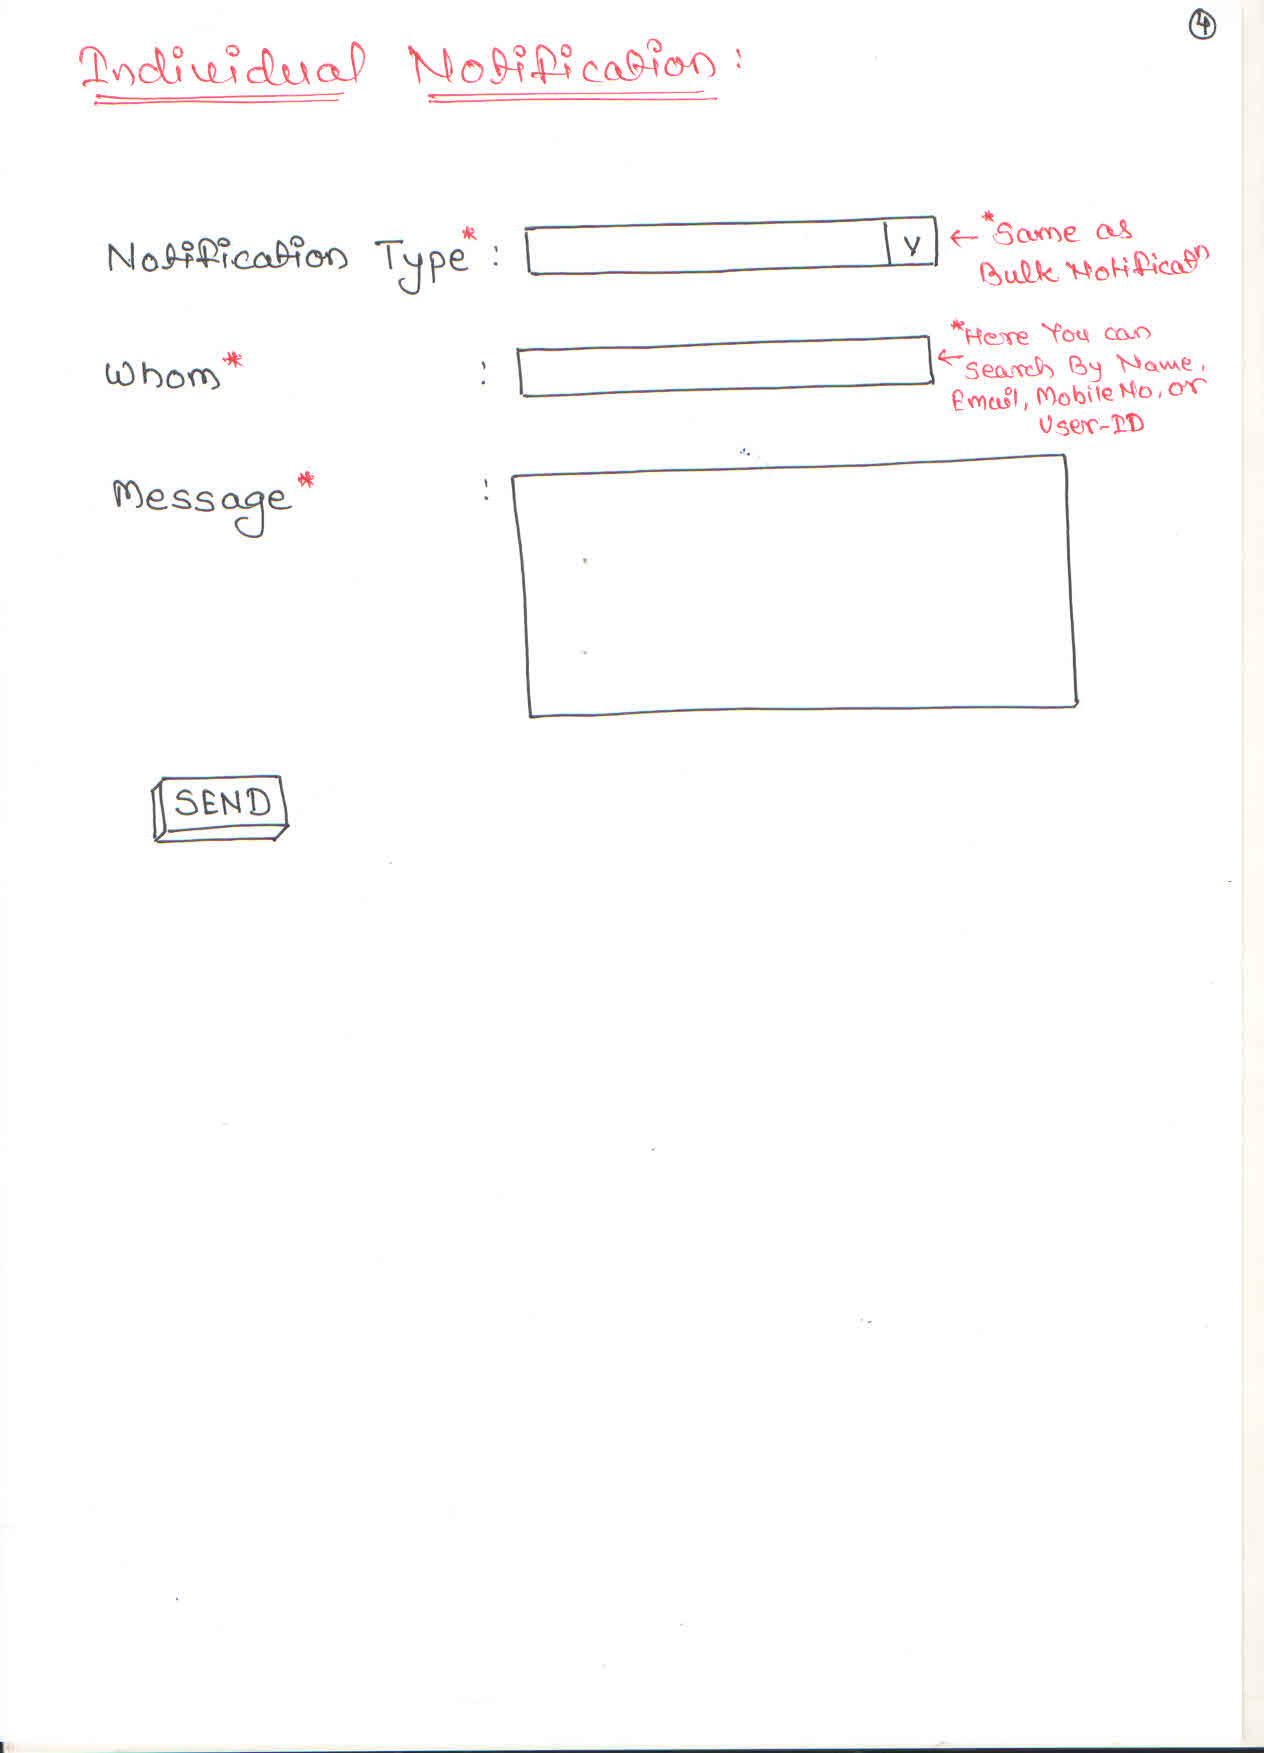 4
Individual Notification:
Notification Type* :
V
← *Same as
Bulk Notificatn
Whom* :
*Here You can
← Search By Name,
Email, Mobile No, or
User-ID
Message* :
SEND